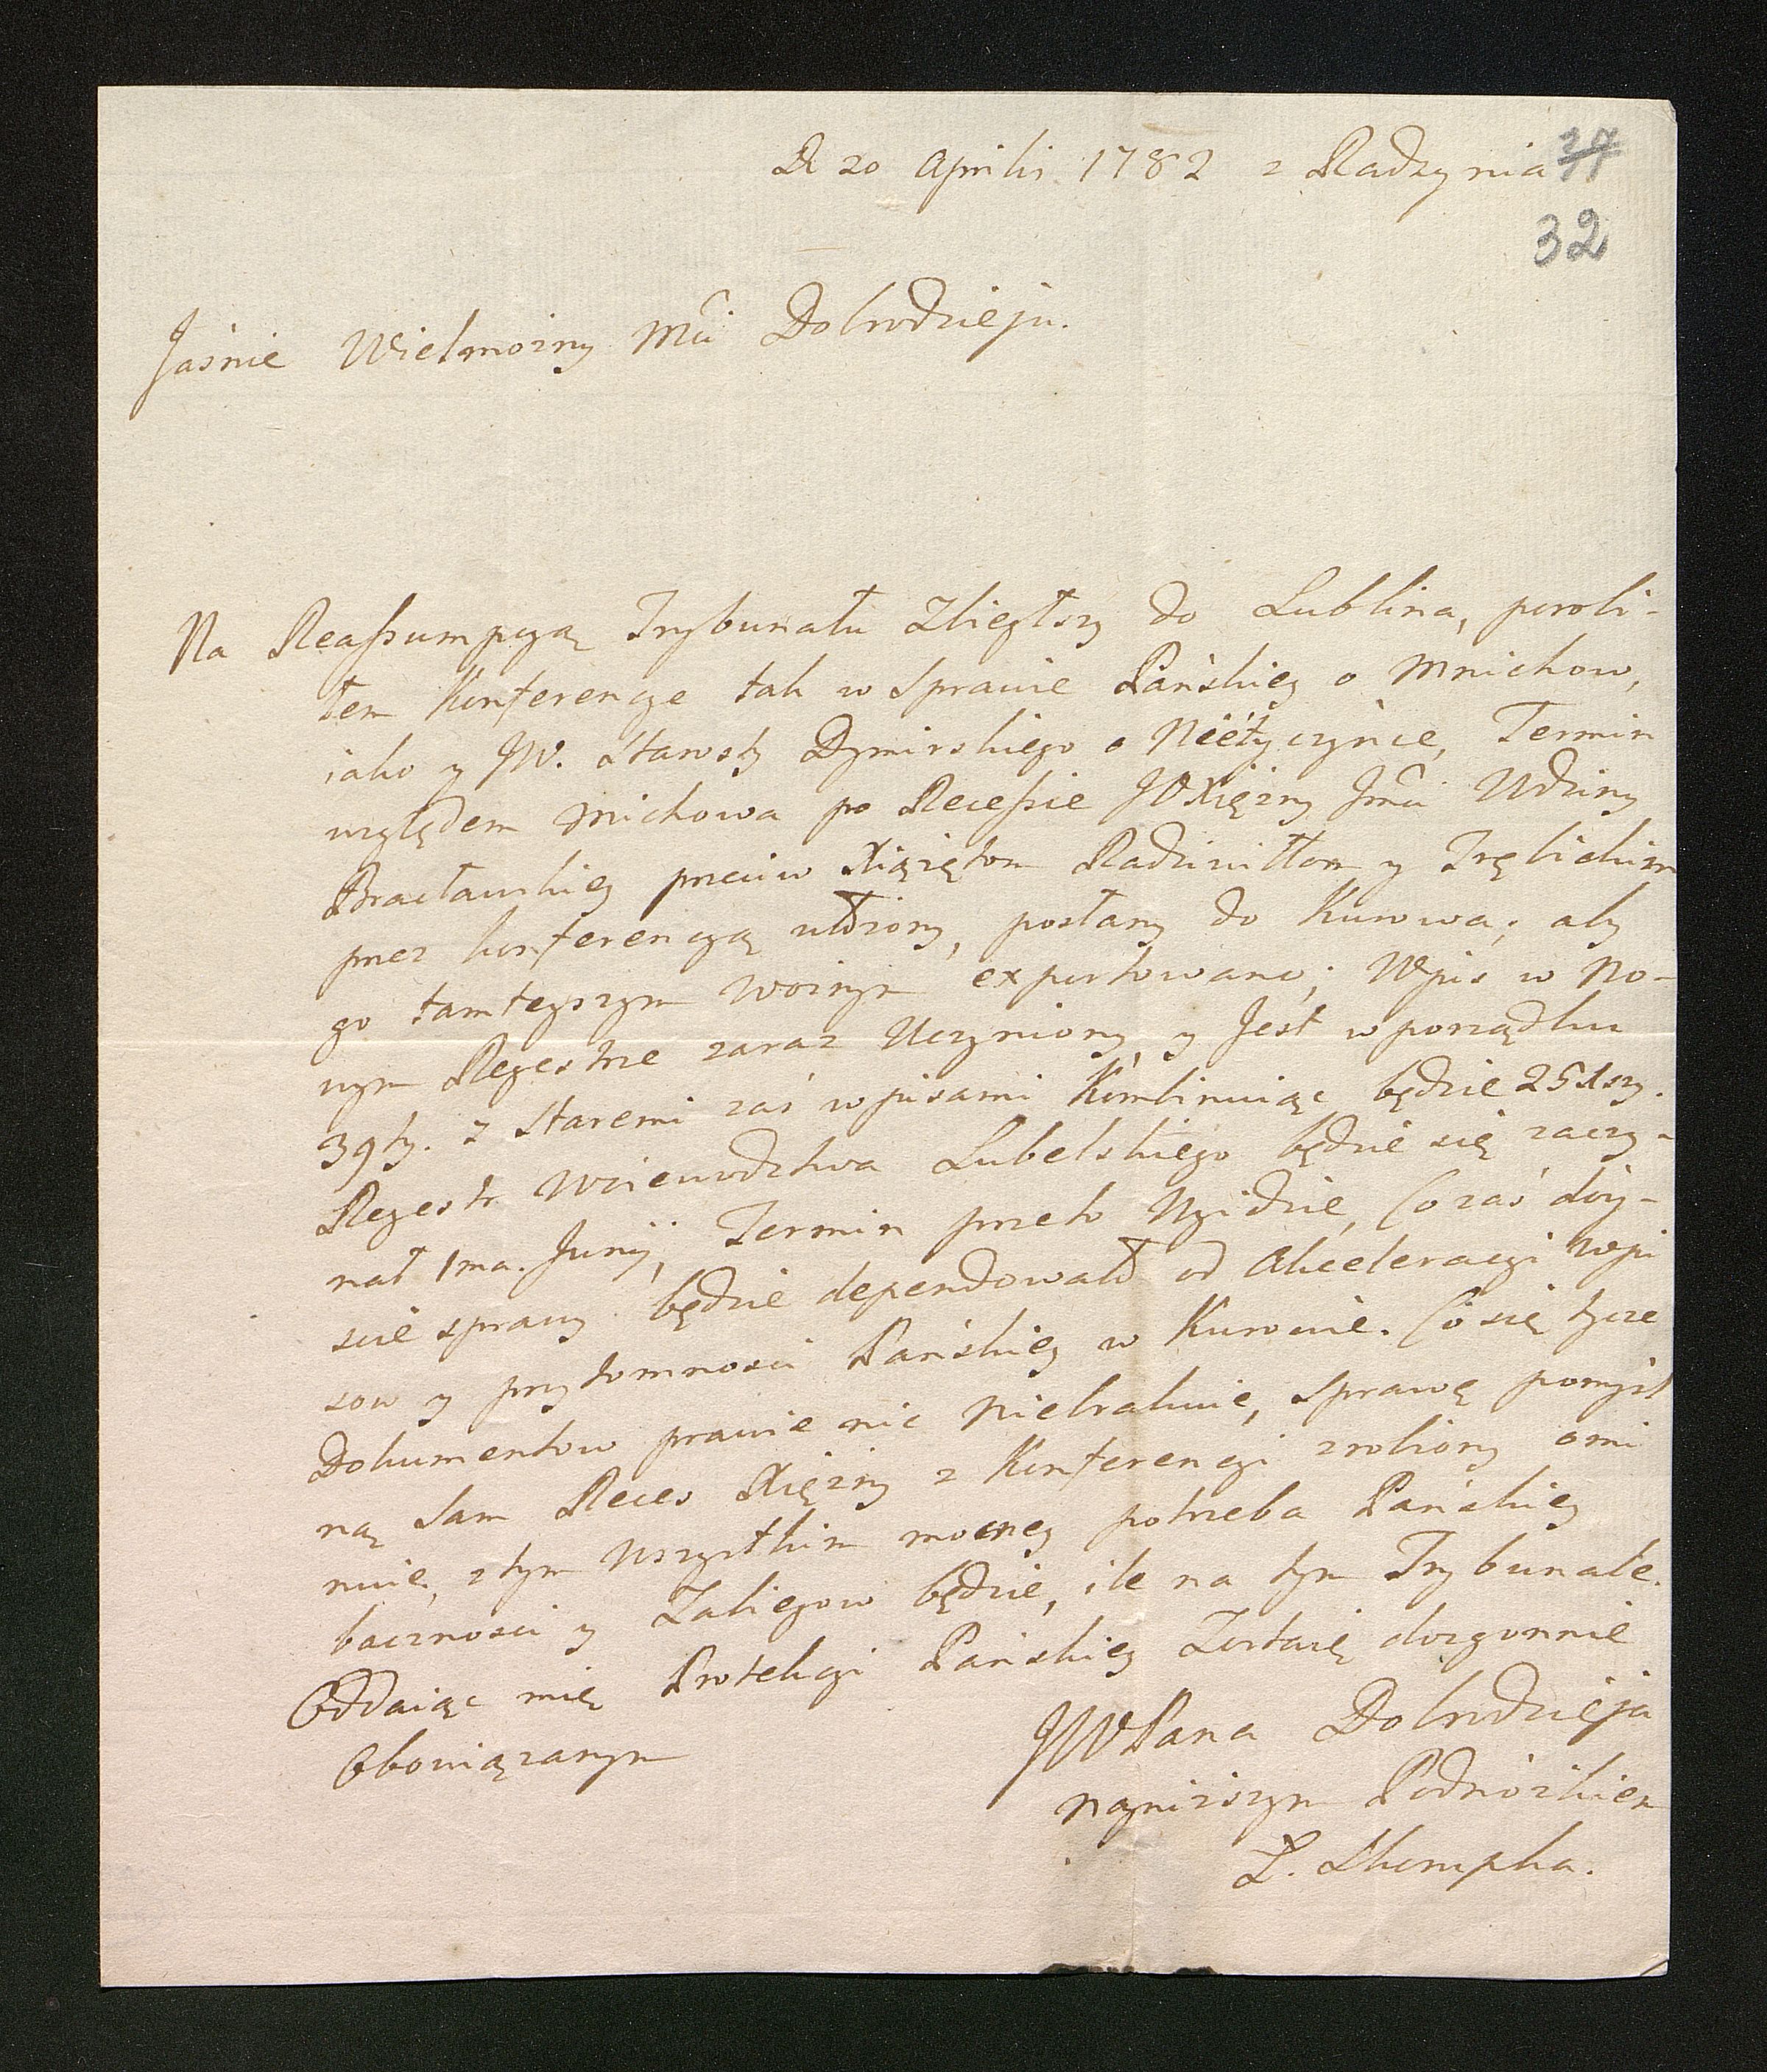 D 20 Aprilis 1782 z Radzynia 37
32
Jaśnie Wielmożny Mći Dobrodzieju.
Na Reaſsumpcyą Trybunału Zbiegłszy do Lublina, porobi-
łem Konferencye tak w Sprawie Pańskiey o Mnichow,
iako y JW. Starosty Dymirskiego o Termin
względem Mnichowa po Receſsie JOXiężny Jmći Wdziny
Bracławskiey przeciw Xiążętom Radziwiłłom y Trębickim
przez konferencyą ułożony, posłany do Kurowa; aby
go tamteyszym Woźnym exportowano; Wpis w No-
wym Regestrze zaraz Uczyniony y Jest w porządku
39ty. z Staremi zaś wpisami Kombinuiąc będzie 251szy.
Regestr Woiewodztwa Lubelskiego będzie się zaczy-
nał 1ma. Junij, Termin przeto Uyidzie, Co zaś doy-
scie sprawy będzie dependowało od Akceleracyi wpi
sow y przytomności Pańskiey w Kurowie. Co się tycze
Dokumentow prawie nic niebrakuie, sprawę pomyśl
ną sam Reces Xiężny z Konferencyi zrobiony omi
nuie, z tym wszystkim mocney potrzeba Pańskiey
baczności y Zabiegow będzie, ile na tym Trybunale.
Oddaiąc mię Protekcyi Pańskiey Zostaię dozgonnie
Obowiązanym
JWPana Dobrodzieja
nayniższym Podnóżkiem
Skumpka.